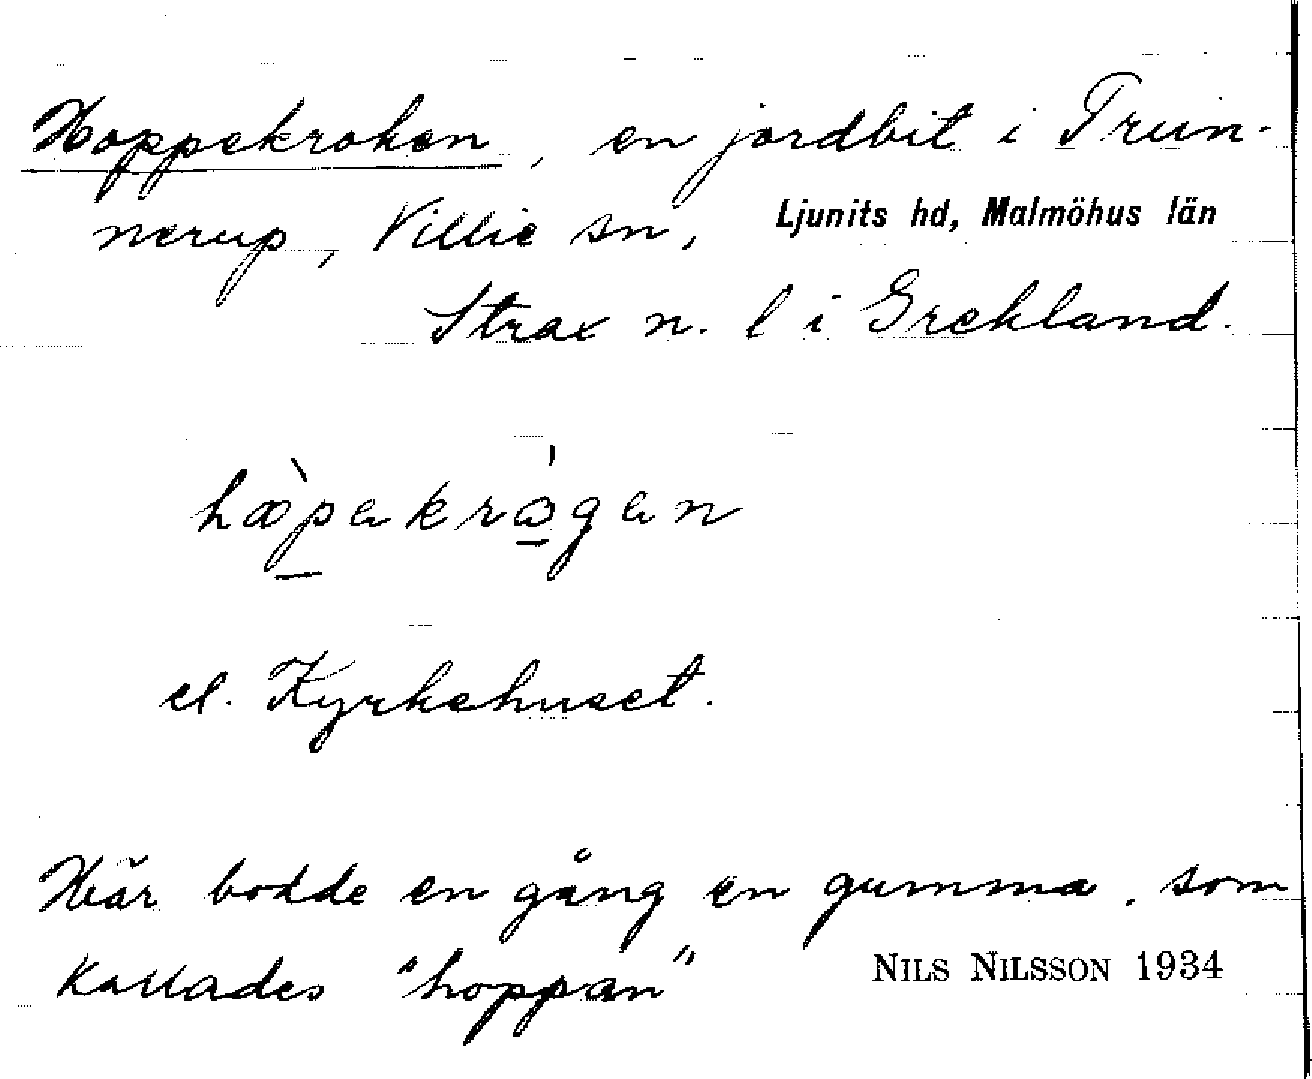 Hoppekroken, en jordbit i Trun-
nerup, Villie sn, Ljunits hd, Malmöhus län
Strax n. l i Grekland.
el. Kyrkehuset.
Här bodde en gång en gumma, som
kallades "hoppan" NILS NILSSON 1934